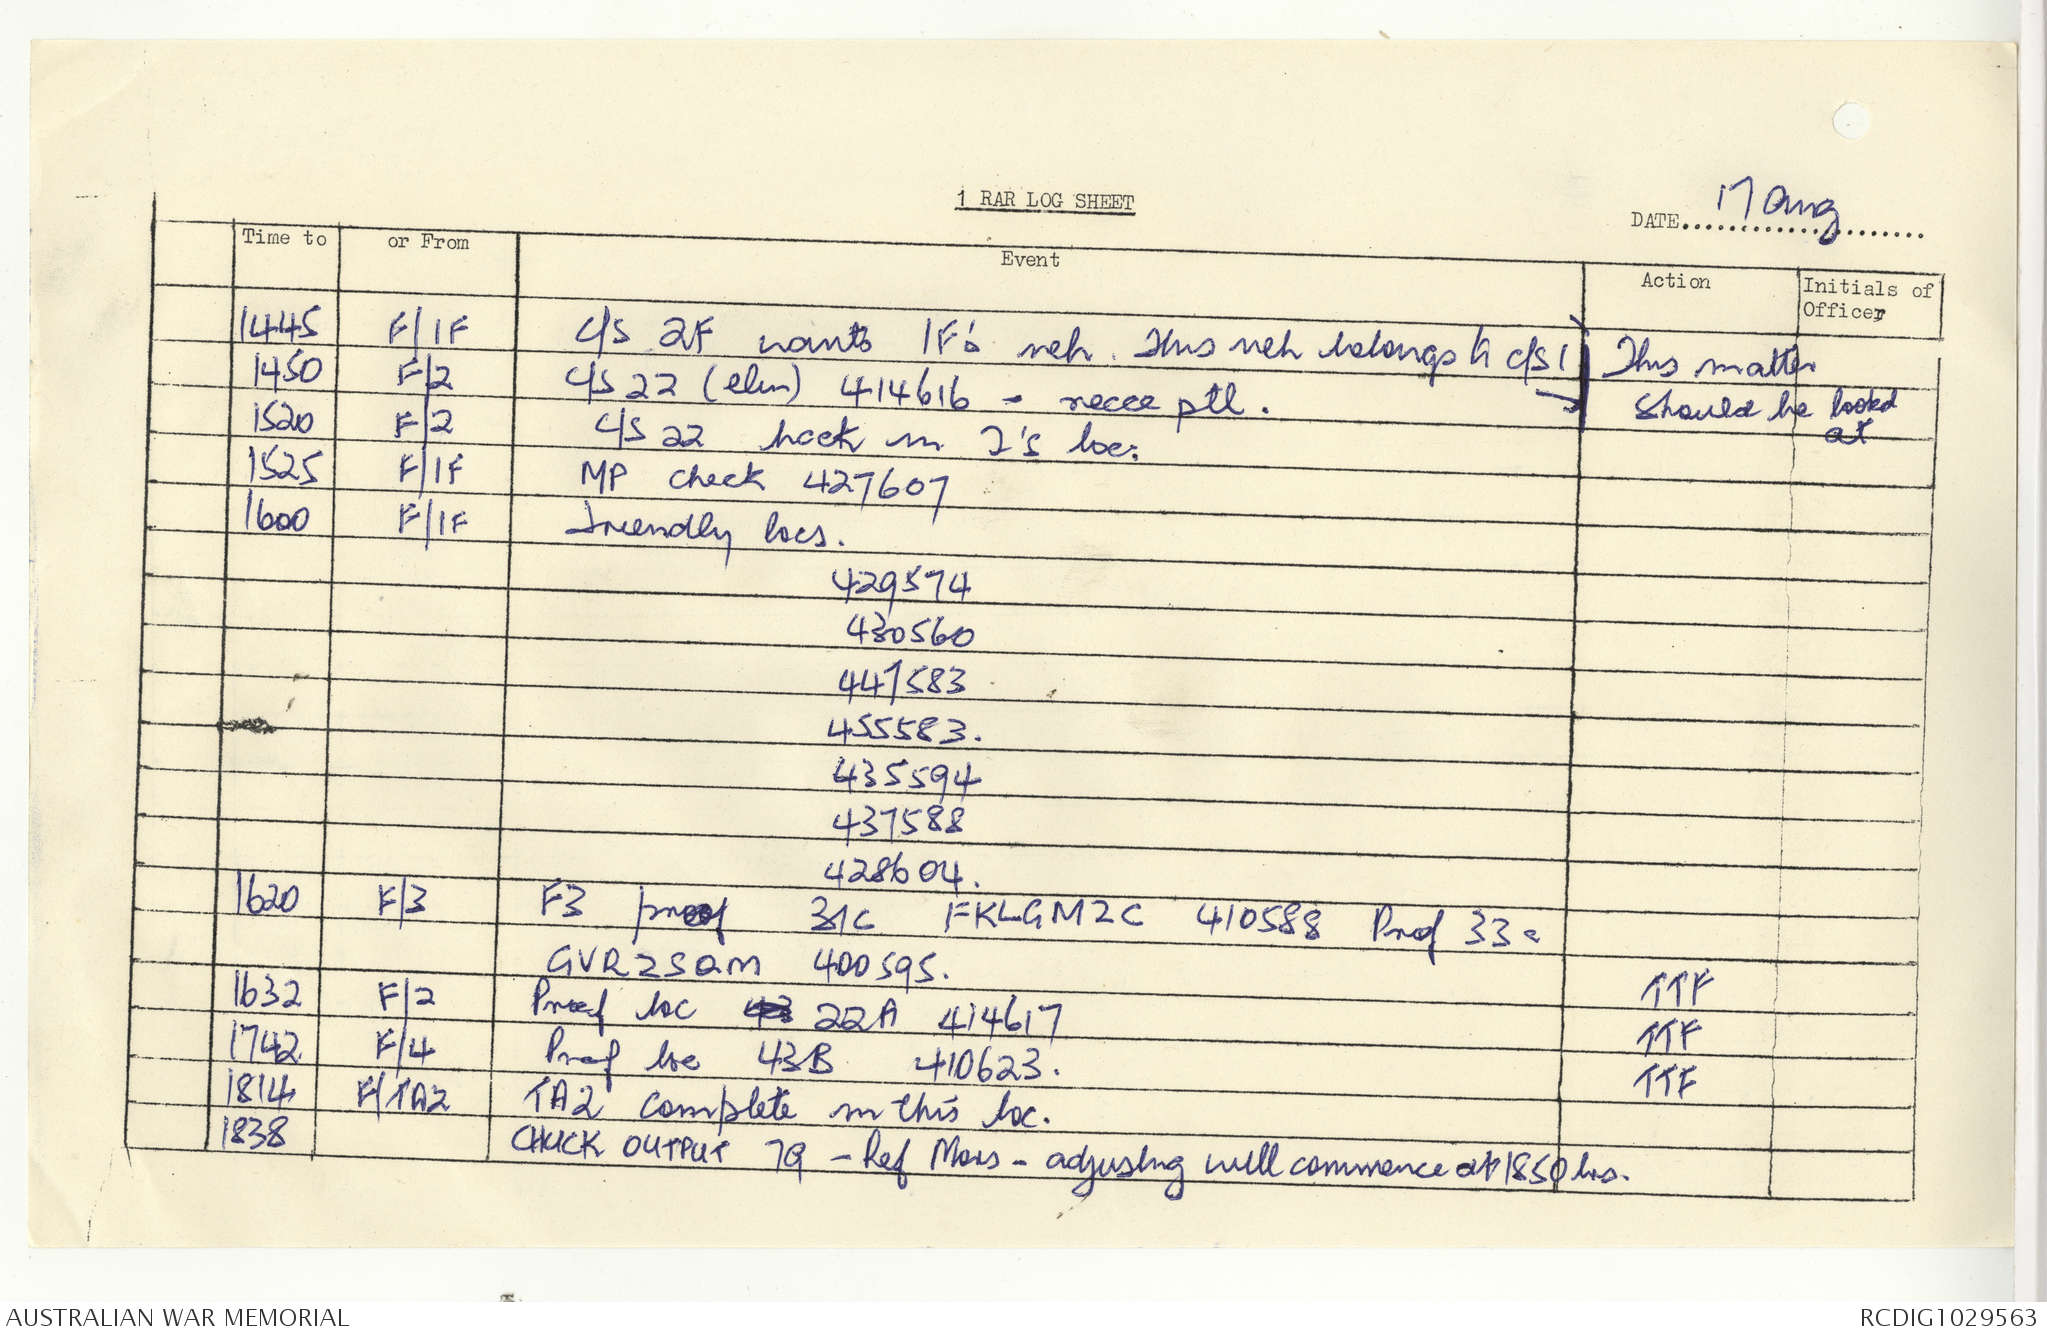 1 RAR LOG SHEET
DATE 17 Aug
Time to or From Event Action Initials of Officer
1445 F/1F C/S 2F wants 1F's veh. This veh belongs to C/S 1 This matter
1450 F/2 C/S 22 (elm) 414616 - recce ptl. should be looked at
1520 F/2 C/S 22 back in 2's loc.
1525 F/1F MP check 427607
1600 F/1F Friendly locs.
429574
430560
447583
455583.
435594
437588
428604.
1620 F/3 F3 proof 31C FKLGMZC 410588 Prof 33
GVRZSQM 400595. TTF
1632 F/2 Proof loc 22A 414617 TTF
1742 F/4 Prof loc 43B 410623. TTF
1814 F/TA2 TA2 complete in this loc.
1838 CHUCK OUTPUT 79 - Ref Mors - adjusting will commence at 1850 hrs.
AUSTRALIAN WAR MEMORIAL RCDIG1029563